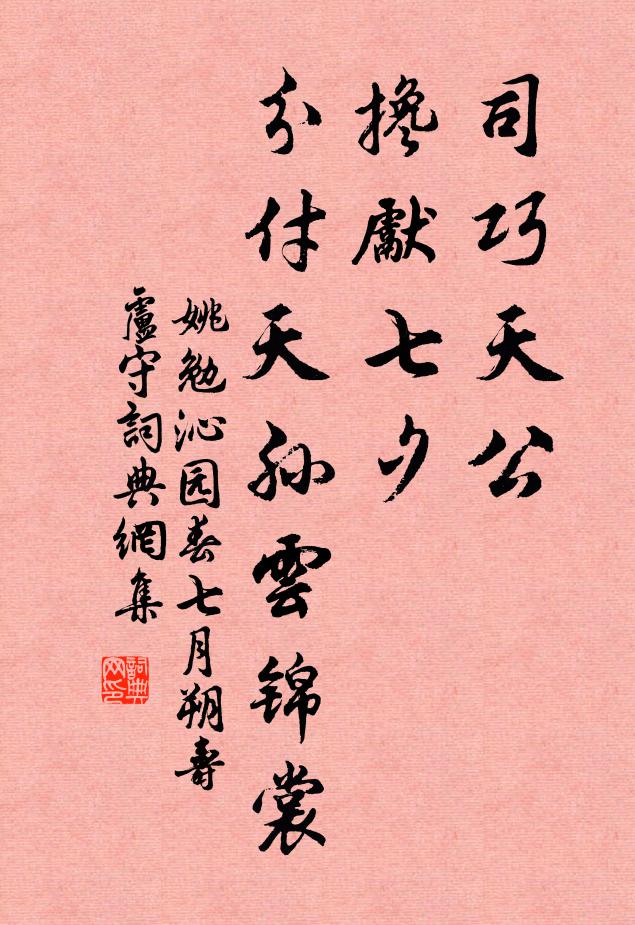 司巧天公
搀獻七夕
分付天孫雲錦裳
姚勉沁园春七月朔壽
盧守詞典網集
詞典网印